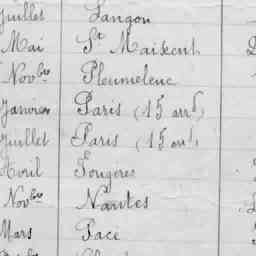 Juillet Langon
Mai St Maixent
Novbre Pleumeleuc
Janvier Paris (15 arrt)
Juillet Paris (15 arrt)
Avril Fougères
Novbre Nantes
Mars Pacé